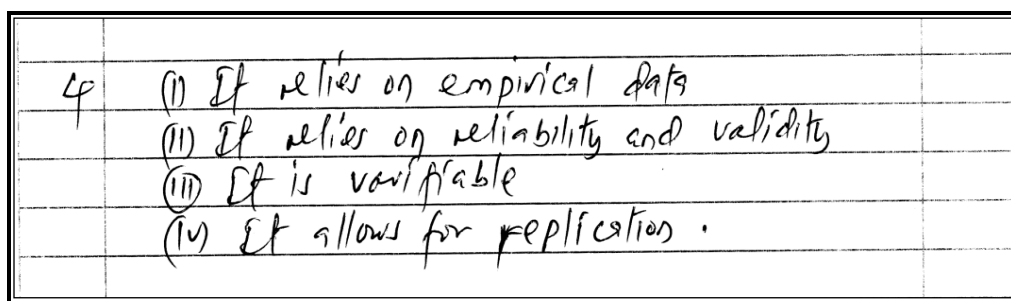 4 (i) It relies on empirical data
(ii) It relies on reliability and validity
(iii) It is varifiable
(iv) It allows for replication.